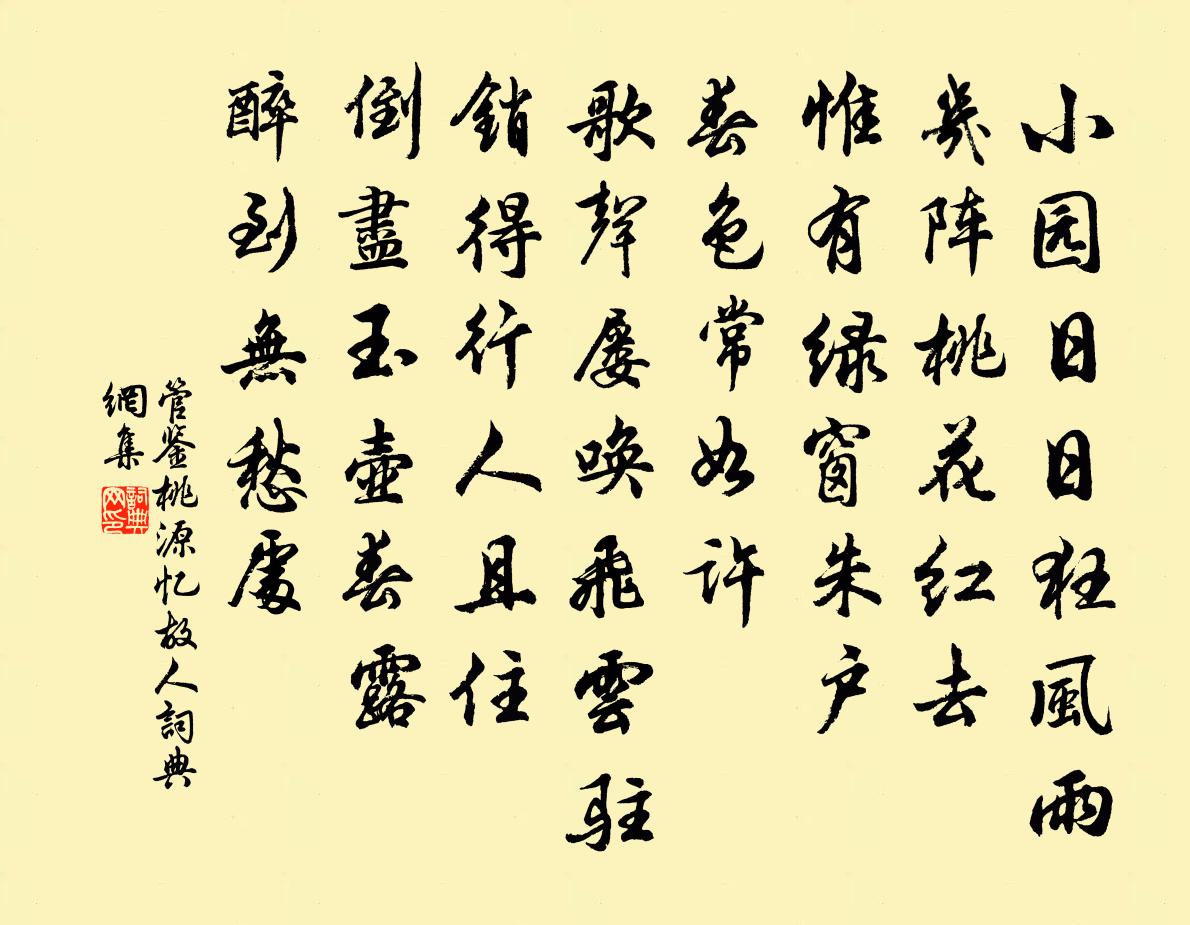 小园日日狂風雨
幾阵桃花红去
惟有绿窗朱户
春色常如许
歌聲屡唤飛雲駐
銷得行人且住
倒盡玉壺春露
醉到無愁處
管鉴桃源忆故人詞典
網集
詞典
网印